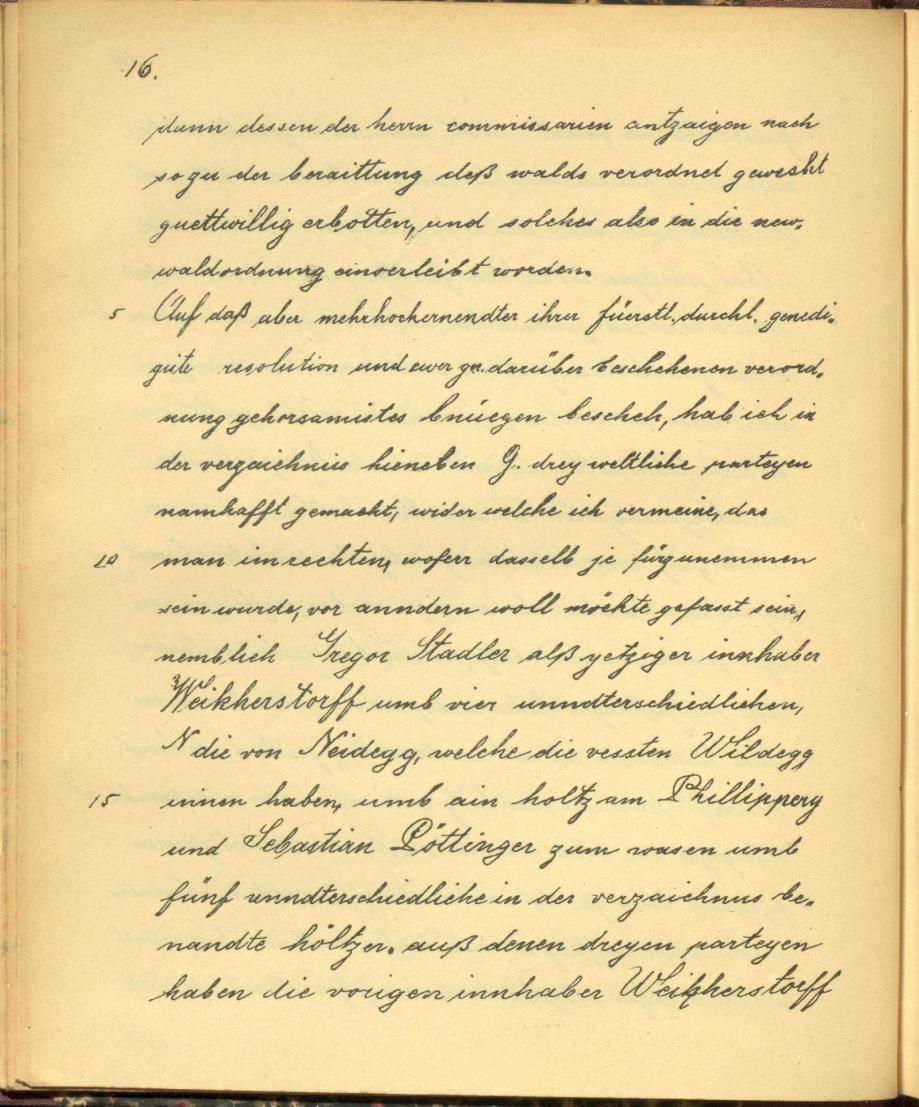 16.
dann dessen der herrn commissarien antzaigen nach
so zu der beraittung deß walds verordnet gewesst
guettwillig erbotten, und solches also in die new,
waldordnung einverleibt worden.
5 Auf daß aber mehrhochernendter ihrer füerstl. durchl. genedi,
giste resolution und ewer gn. darüber beschehenen verord,
nung gehorsamistes bnüegen bescheh, hab ich in
der verzaichnus hieneben G. drey weltliche parteyen
namhafft gemacht, wider welche ich vermeine, das
10 man im rechten, wofern dasselb je fürzunemmen
sein wurde, vor anndern woll möchte gefasst sein,
nemblich Gregor Stadler alß yetziger innhaber
Weikherstorff umb vier unndterschiedlichen,
N die von Neidegg, welche die vessten Wildegg
15 innen haben, umb ain holtz am Phillipperg
und Sebastian Pöttinger zum wasen umb
fünf unndterschiedliche in der verzaichnus be,
nandte höltzer. auß denen dreyen parteyen
haben die vorigen innhaber Weikherstorff